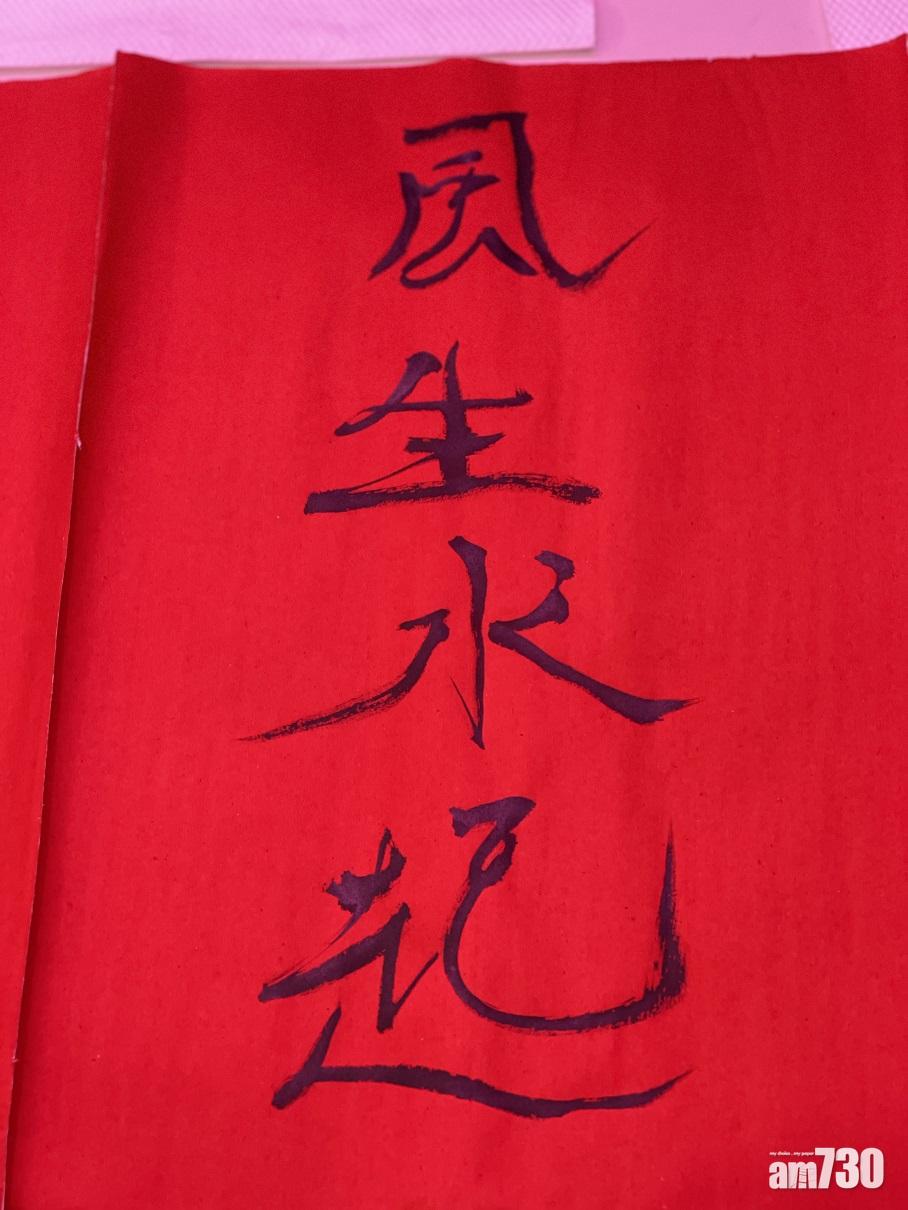 風生水起
my choice . my paper
am730